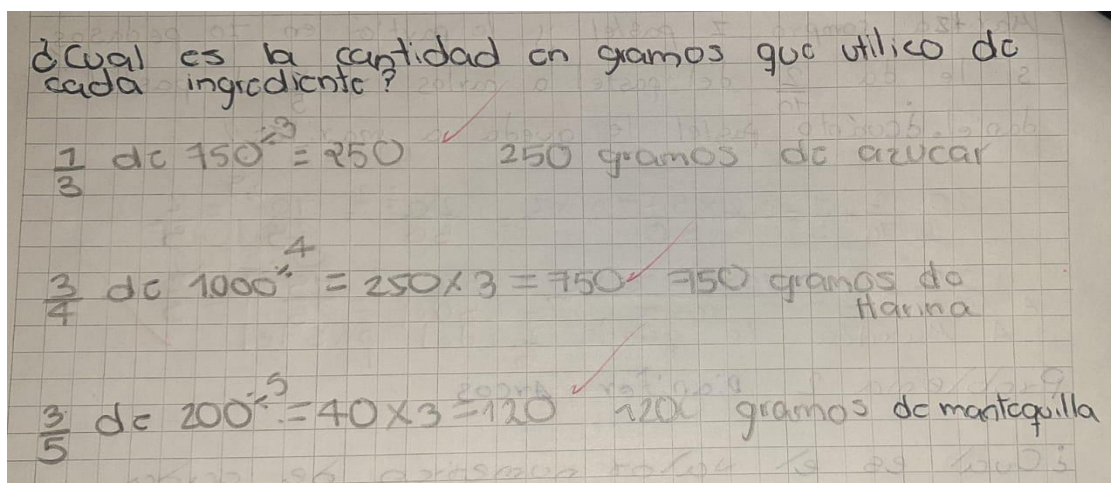 ¿Cual es la cantidad en gramos que utilico de
cada ingrediente?
1/3 de 750 ÷3 = 250 250 gramos de azucar
3/4 de 1000 ÷4 = 250 x 3 = 750 750 gramos de
Harina
3/5 de 200 ÷5 = 40 x 3 = 120 120 gramos de mantequilla